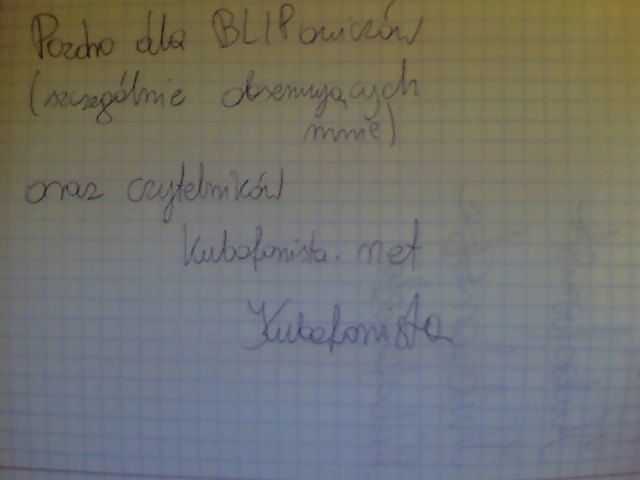 Pozdro dla BLIPowiczów
(szczególnie obserwujących
mnie)
oraz czytelników
Kubofonista.net
Kubofonista